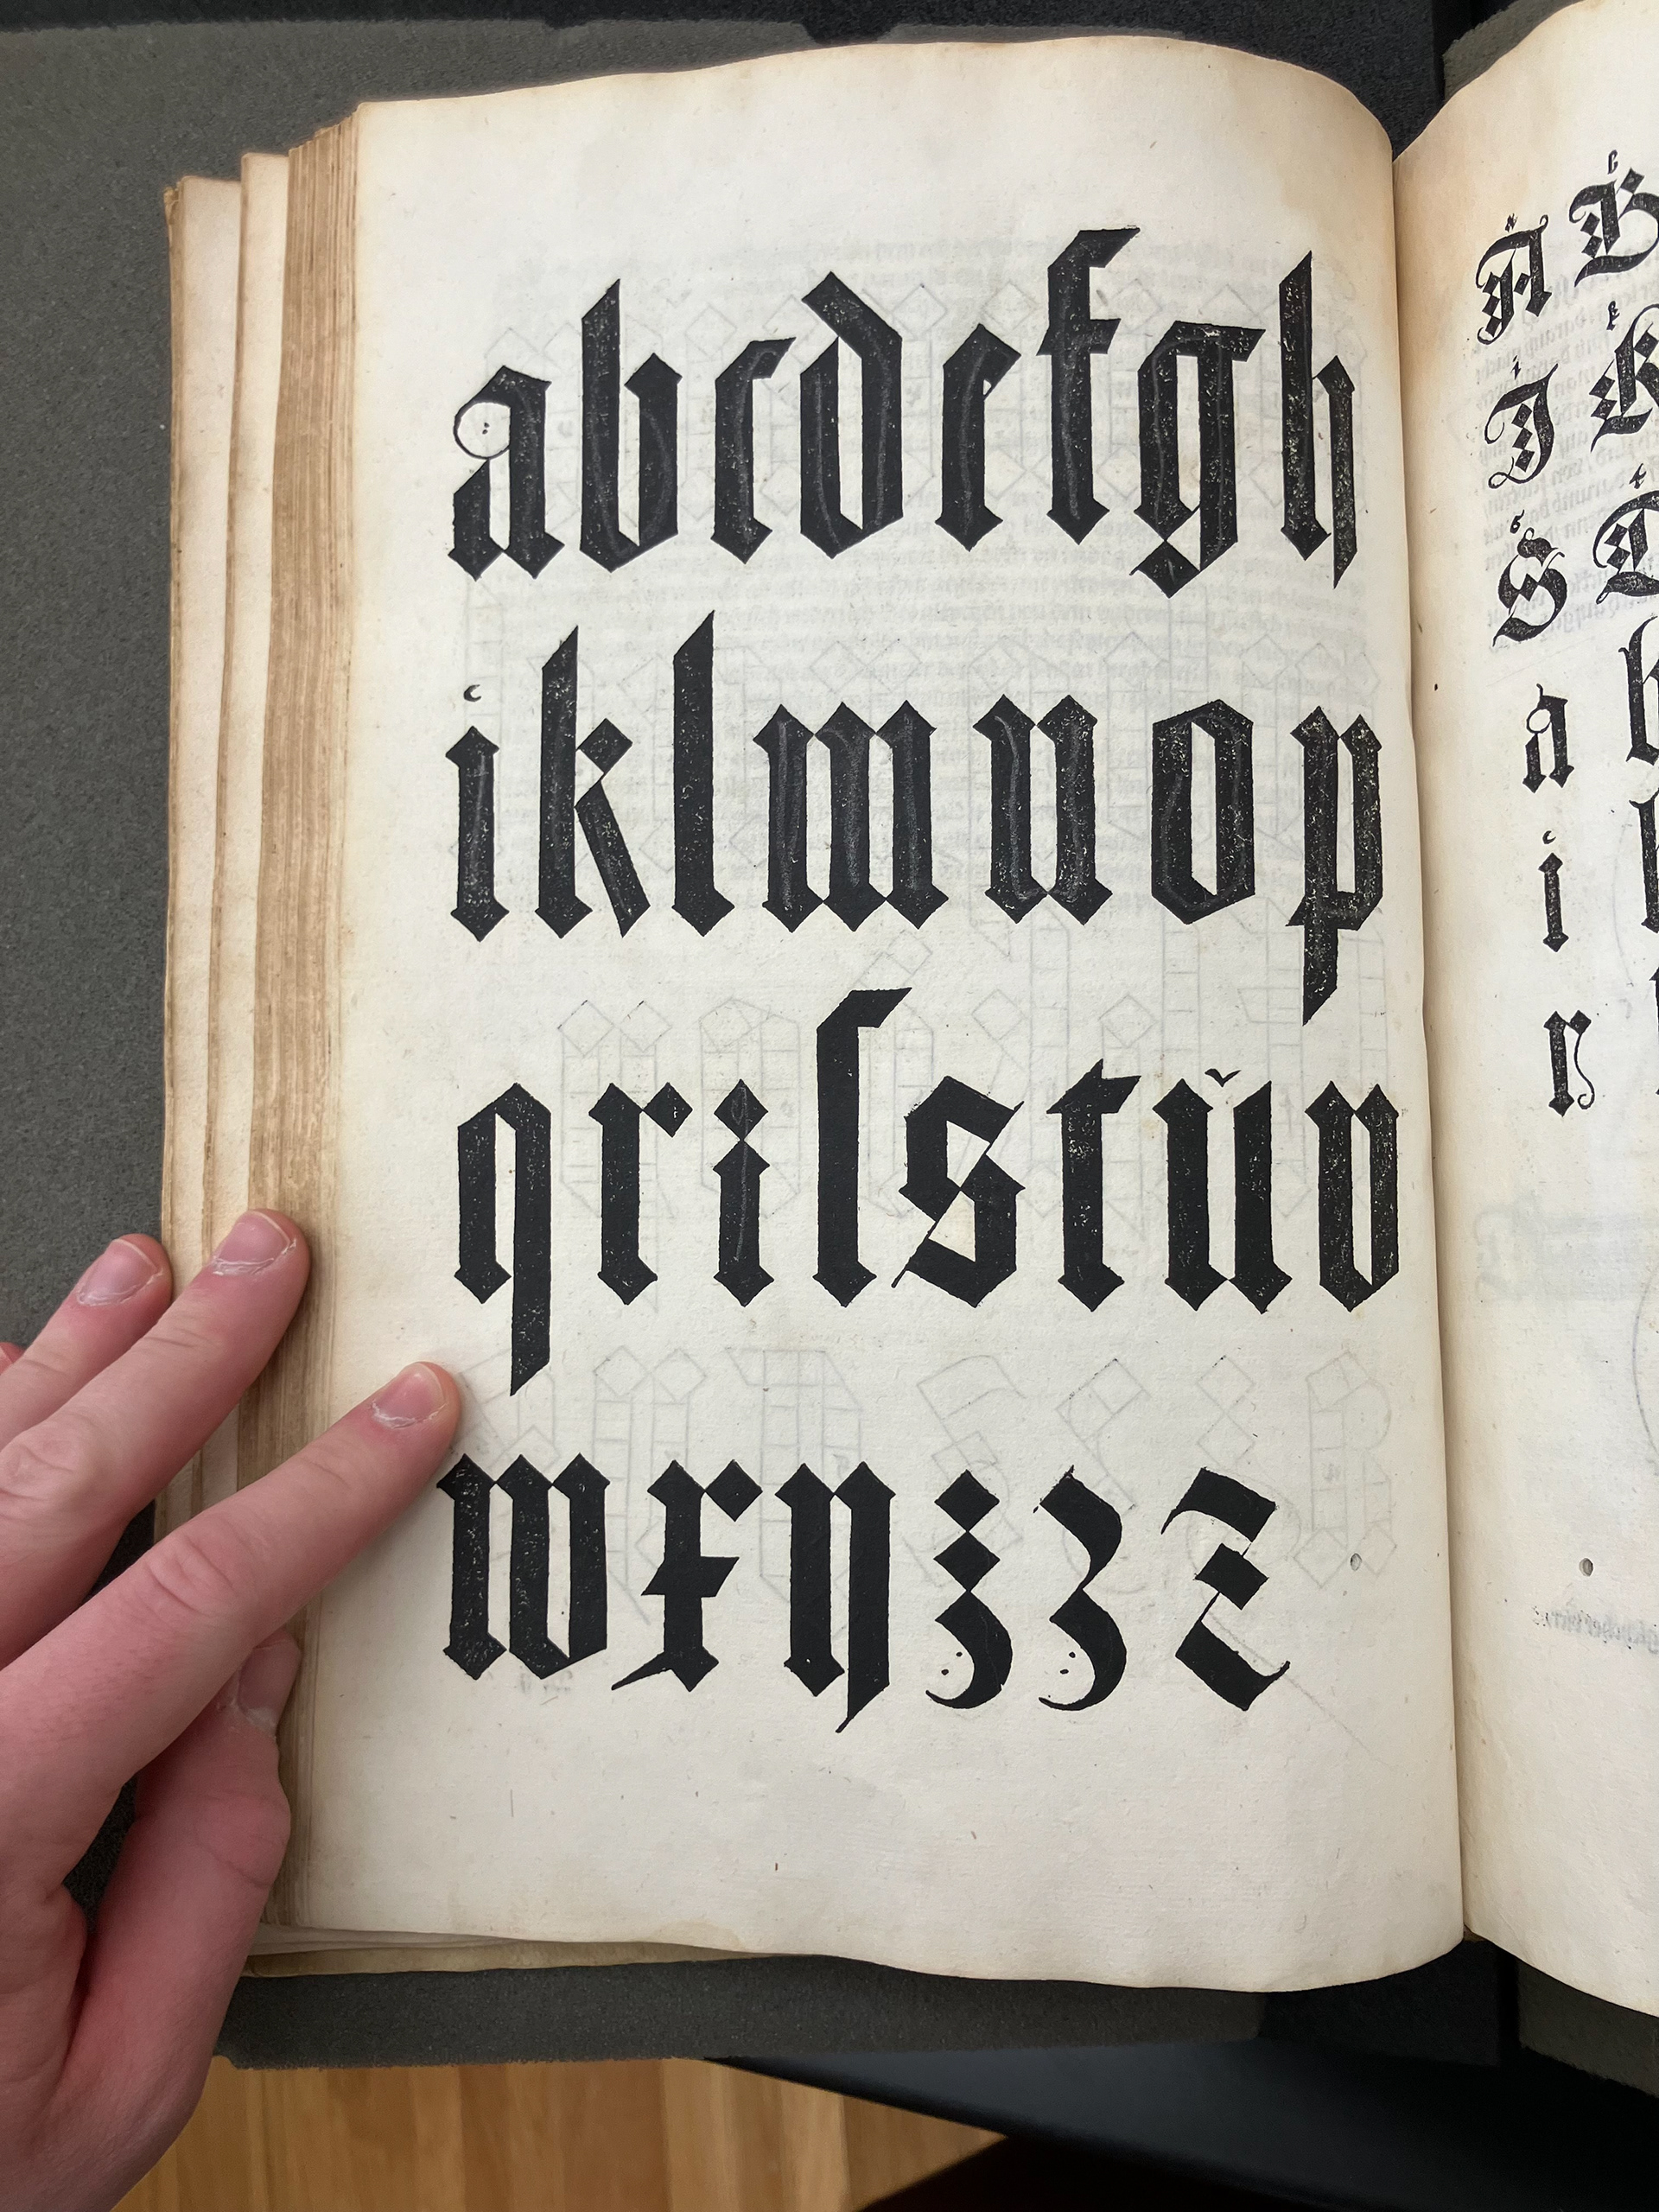 a b c d e f g h
i k l m n o p
q r r ſ s t ŭ v
w x y z z z
A B
I K
S T
a
i
r